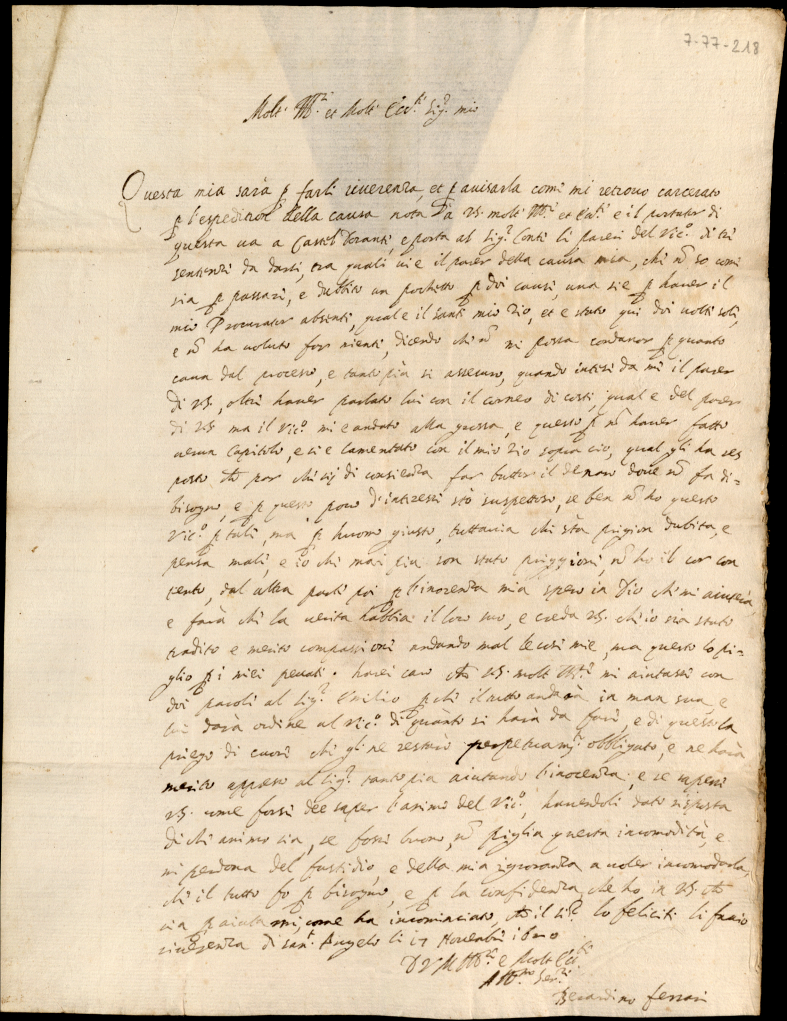 7-77-218
Molt' Ill.re et Molt' Ecc.te Sig.r mio
Questa mia sarà p farli riverenza, et p avisarla comi mi retrovo carcerato
p l'espeditione della causa nota à VS. molt' Ill.re et Ecc.te e il portator di
questa va a Castel Duranti, e porta al Sig.r Conti li pareri del Vic.o di tri
sentenzi da darsi, tra quali vi e il parer della causa mia, chi nō so comi
sia p passari, e dubbito un pochetto p doi causi, una si e p haver il
mio Procurator absenti, qual e il santi mio Zio, et e stato qui doi volti soli,
e nō ha voluto far nienti, dicendo chi nō mi possa condanar p quanto
cava dal processo, e tanto più si assecuro, quando intisi da mi il parer
di VS., oltri haver parlato lui con il di costi, qual e del parer
di VS. ma il Vic.o mi e andato alla grossa, e questo p nō haver fatto
verun Capitolo, e si e lamentato con il mio Zio sopra ciò, qual gli ha res
posto che par chi sij di consienza far buttar il denaro dove nō fa di=
bisogno, e p questo poco d'interessi stò suspettoso, se ben nō ho questo
Vic.o p tali, ma p huomo giusto, tuttavia chi stà prigion dubita, e
pensa mali, e io chi mai più son stato priggioni nō ho il cor con
tento, dal altra parti poi p l'inocenza mia spero in Dio chi mi aiuterà,
e farà chi la verita habbia il loco suo, e creda VS. chi io sia stato
tradito e merito compassioni andando mal le cosi mie, ma questo lo pi=
glio p i miei peccati. harei caro che VS. molt' Ill.re mi aiutassi con
doi paroli al Sig.r Emilio p chi il tutto andarà in man sua, e
lui darà ordine al Vic.o di quanto si harà da fari, e di questo la
priego di cuori chi gli ne restirò perpetuam.te obbligato, e ne harà
merito appreso al Sig.r tanto più aiutando l'inocenza; e se sapessi
VS. come forsi dee saper l'animo del Vic.o, havendoli dato risposta
di chi animo sia, se fossi buono, nō piglia questa incomodità, e
mi perdona del fastidio, e della mia ignoranza a voler incomodarla,
chi il tutto fò p bisogno, e p la confidenza, che ho in VS. che
sia p aiutarmi, come ha incominciato, che il Sig.r lo feliciti li faccio
riverenza di sant' Angelo li 17 Novembri
D VS M Ill.re e Molt' Ecc.te
Aff.mo Ser.re
Berardino Ferrari